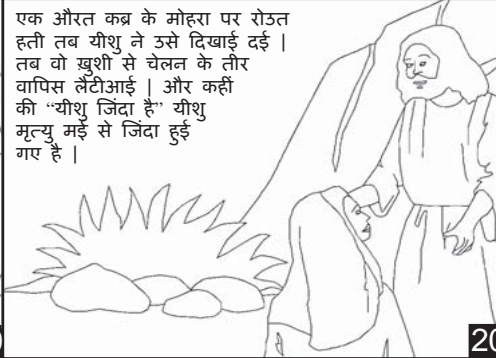 एक औरत कब्र के मोहरा पर रोउत
हती तब यीशु ने उसे दिखाई दई |
तब वो ख़ुशी से चेलन के तीर
वापिस लैटीआई | और कहीं
की “यीशु जिंदा है” यीशु
मृत्यु मईे से जिंदा हुई
गए है |